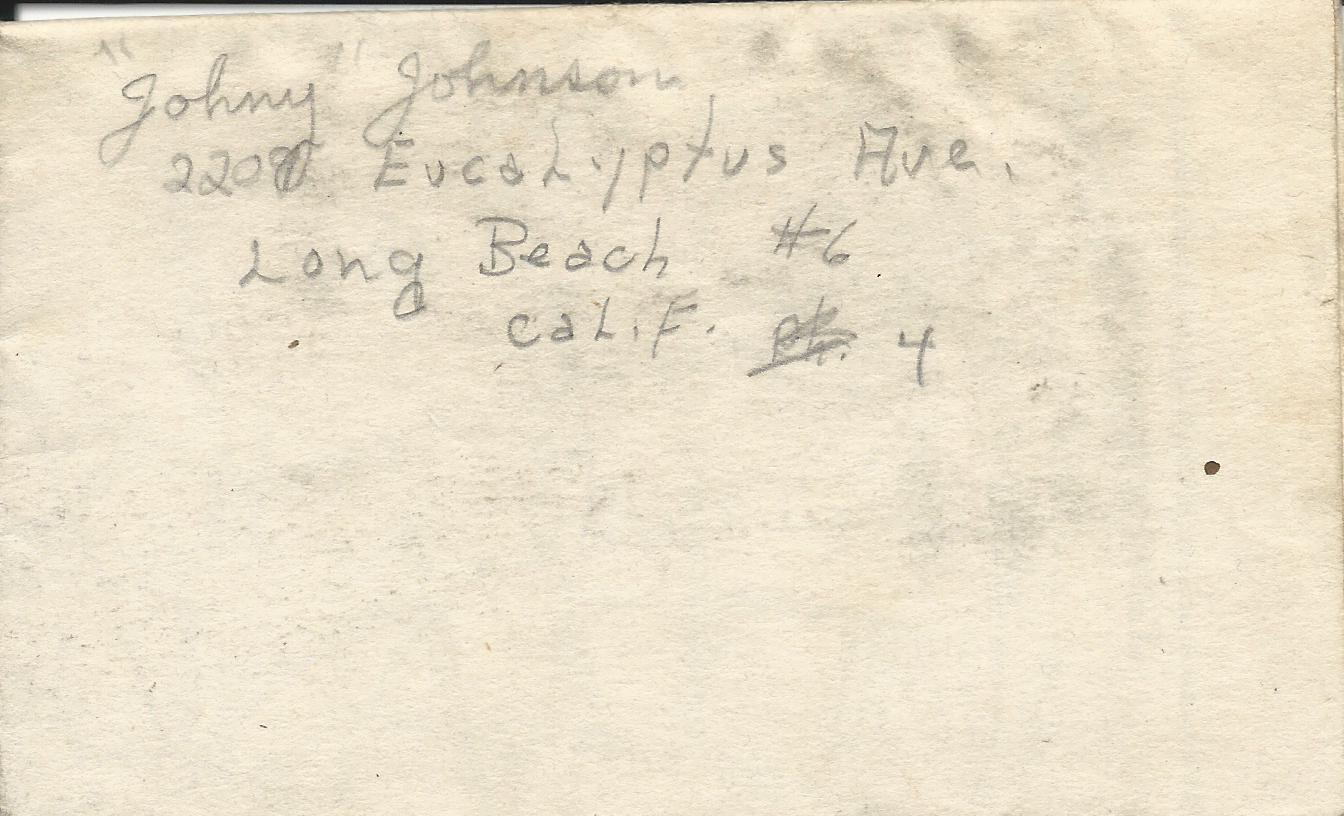 "Johny" Johnson
Eucalyptus Ave.
Long Beach #6
Calif. 4